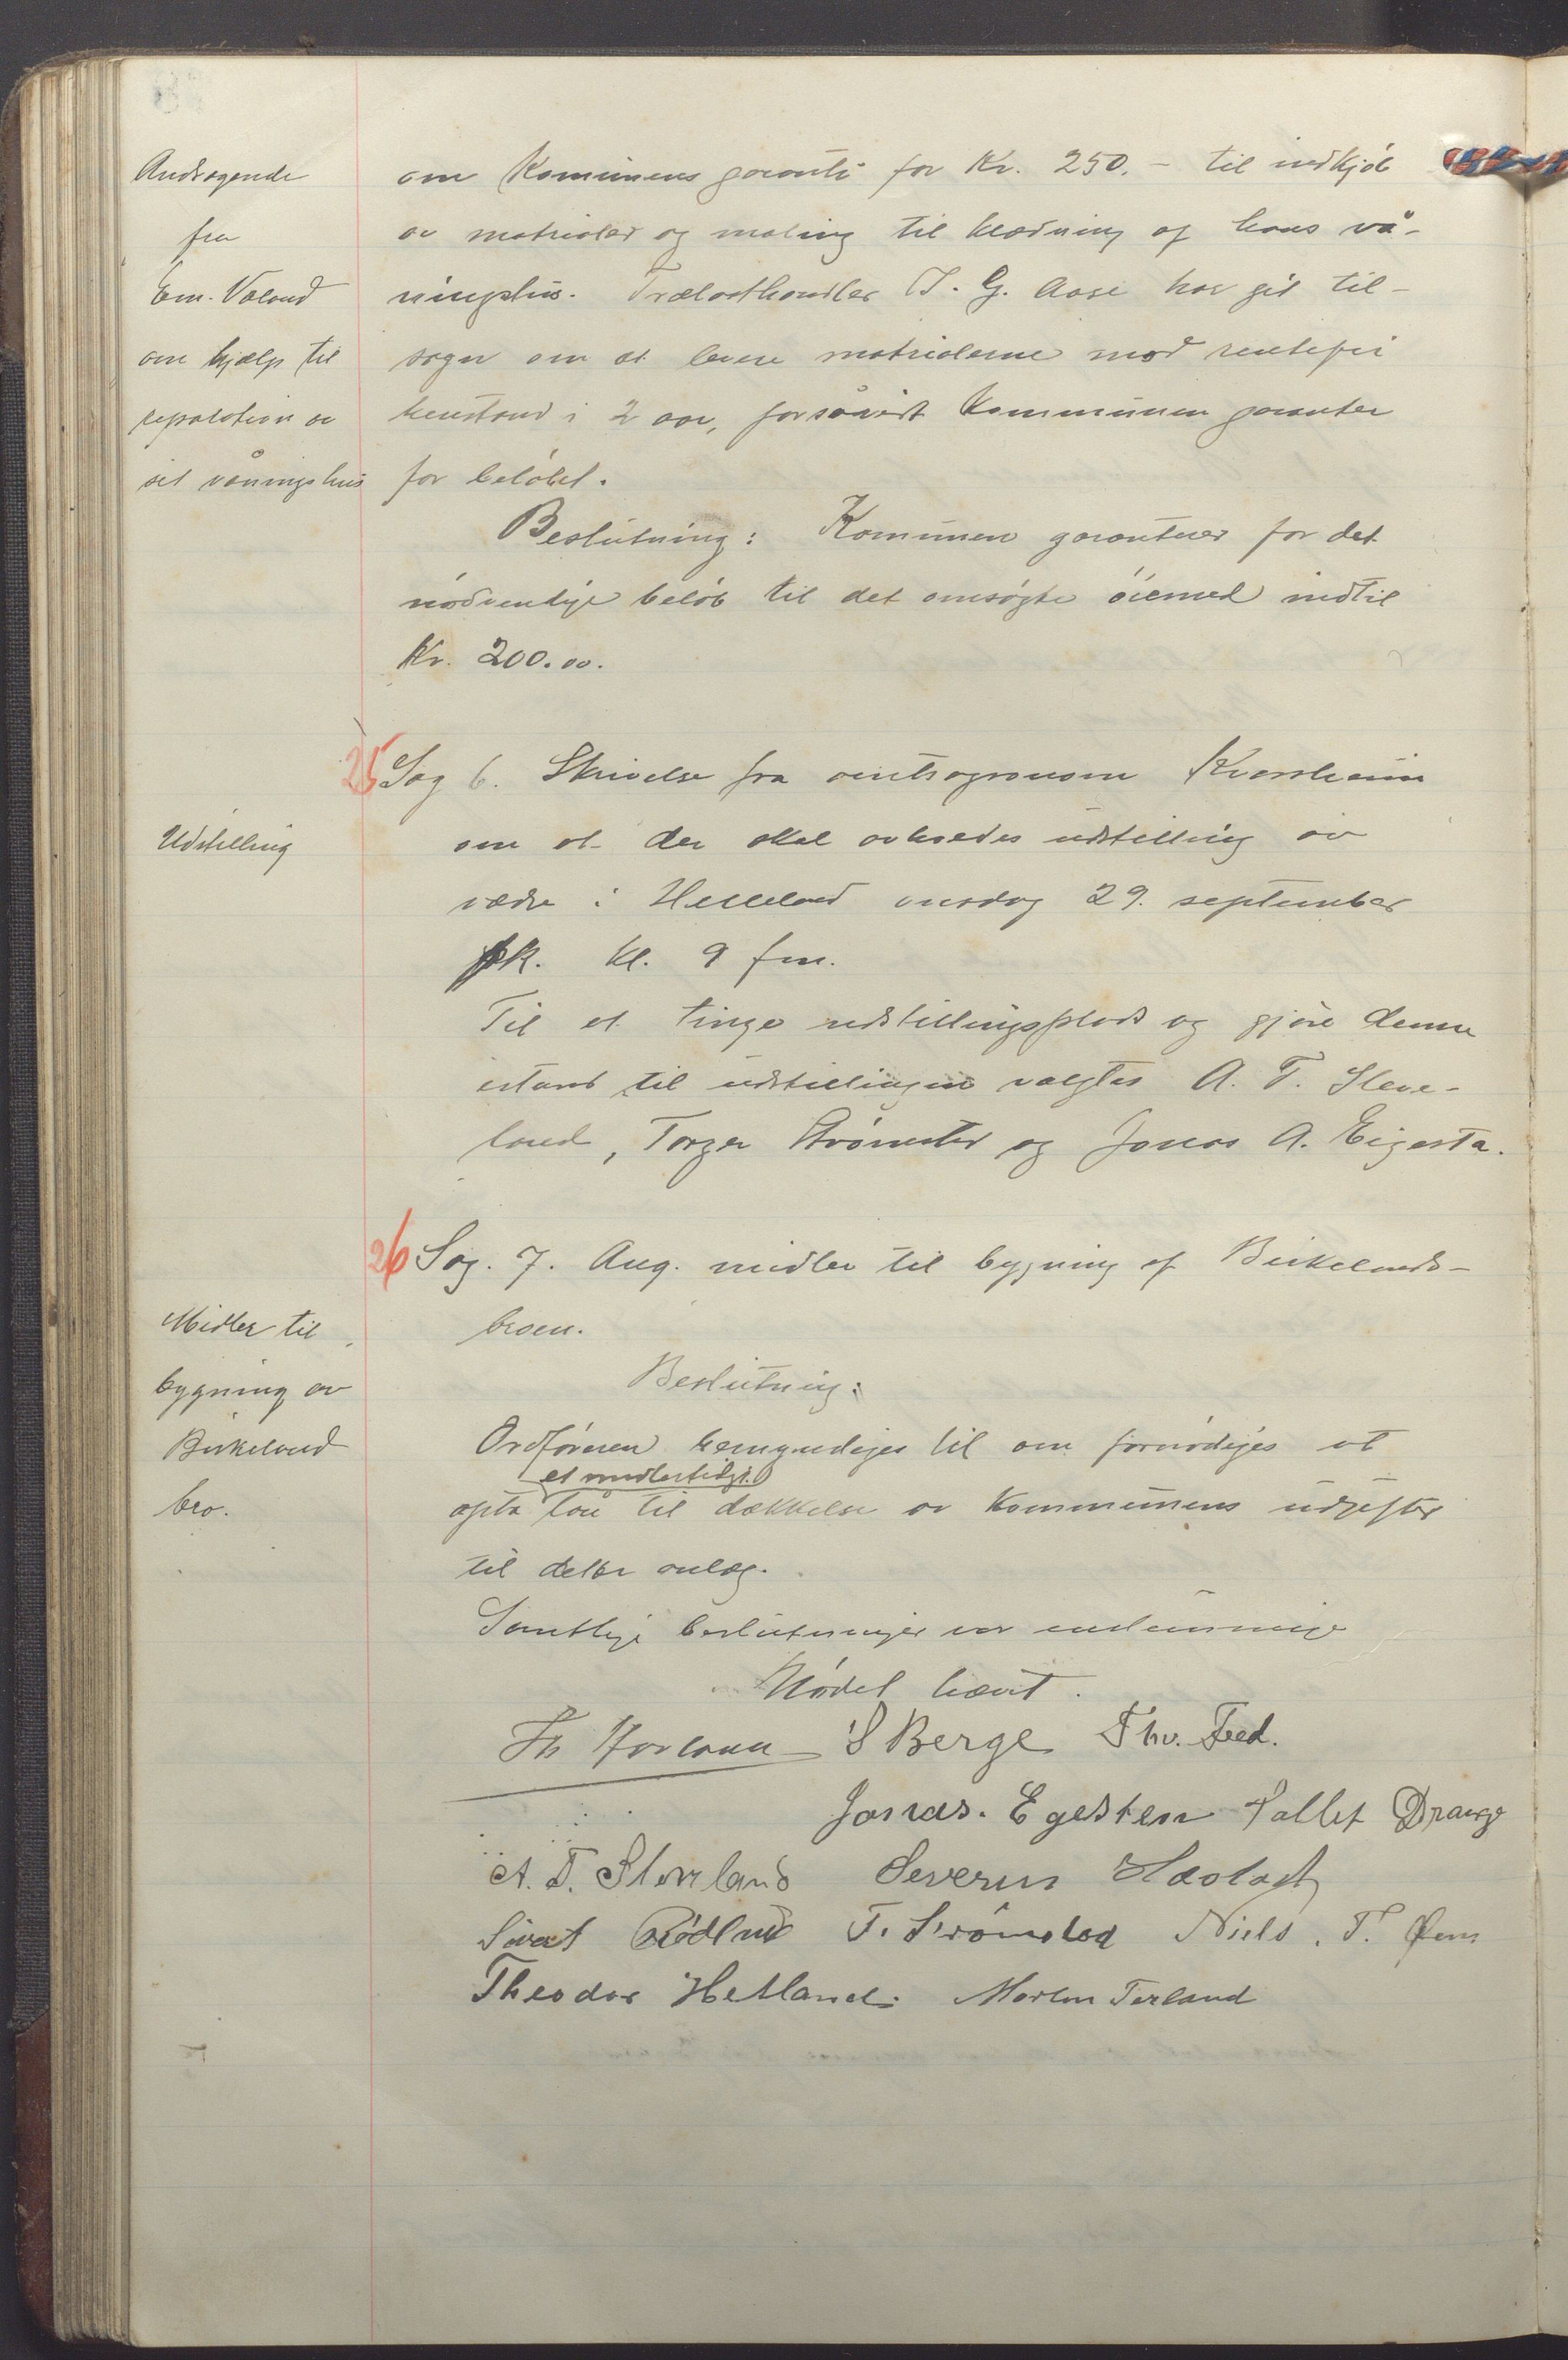 Andragende
fra
Em. Valand
om hjælp til
reparation av
sit våningshus
om Komunens garanti for Kr. 250.- til indkjöb
av matrialer og maling til klædning af hans vå-
ningshus. Trælasthandler T. G. Aase har git til-
sagn om at levere matrialerne mod rentefri
henstand i 2 aar, forsåvidt Kommunen garanterer
for belöbet.
Beslutning: Komunen garanterer for det
nödvendige belöb til det omsögte öiemed indtil
Kr. 200.00.
25 Sag 6. Skrivelse fra amtsagronom Kvassheim
Udstilling
om at der skal avholdes udstilling av
vædre i Helleland onsdag 29. september
kl. 9 fm.
Til at tinge udstillingsplads og gjöre denne
istand til udstillingen valgtes A. T. Sleve-
land, Torger Strömstad og Jonas A. Eigesta.
26 Sag. 7. Ang. midler til bygning af Birkelands-
broen.
Midler til
bygning av
Birkeland
bro.
Beslutning:
Ordföreren bemyndiges til om fornödiges at
et midlertidigt
opta lån til dækkelse av Kommunens udgifter
til dette anlæg.
Samtlige beslutninger var enstemmige
Mödet hævet.
Th S Berge Thv. Feed.
Jonas. Egesten Tallef Drange
A. T. Sleveland Severin
Sivert Rödland T. Strömstad Niels. T.
Theodor Hetland. Morten Terland